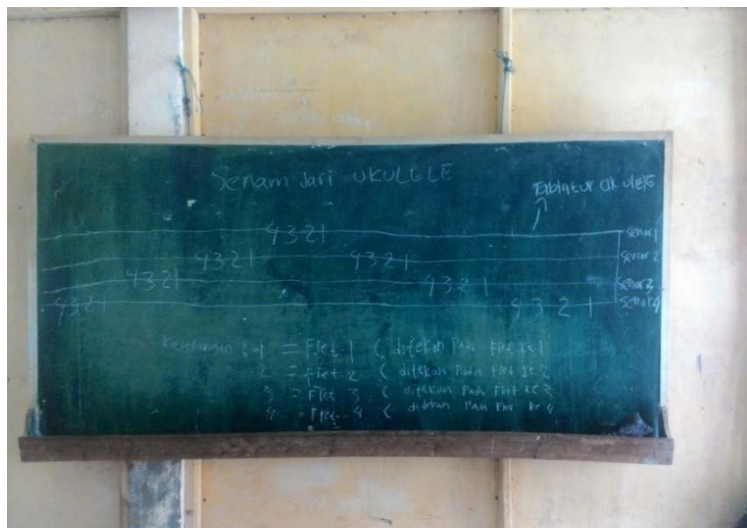 Senam Jari UKULELE
Tablatur Ukulele
4321 senar 1
4321 4321 senar 2
4321 4321 senar 3
4321 4 3 2 1 senar 4
Keterangan : 1 = Fret 1 ( ditekan Pada Fret ke 1
2 = Fret 2 ( ditekan Pada Fret ke 2
3 = Fret 3 ( ditekan Pada Fret ke 3
4 = Fret 4 ( ditekan Pada Fret ke 4